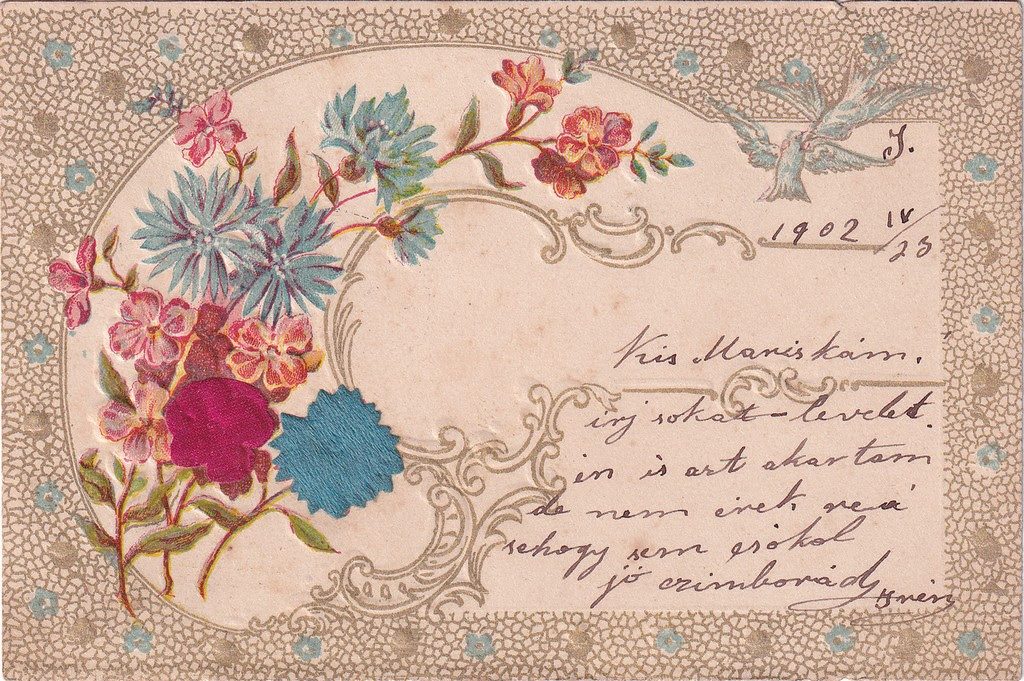 I.
1902 IV/23
Kis Mariskám.
irj sokat - levelet.
én is azt akartam
de nem érek reá
sehogy sem csókol
jó czimborád
Irén